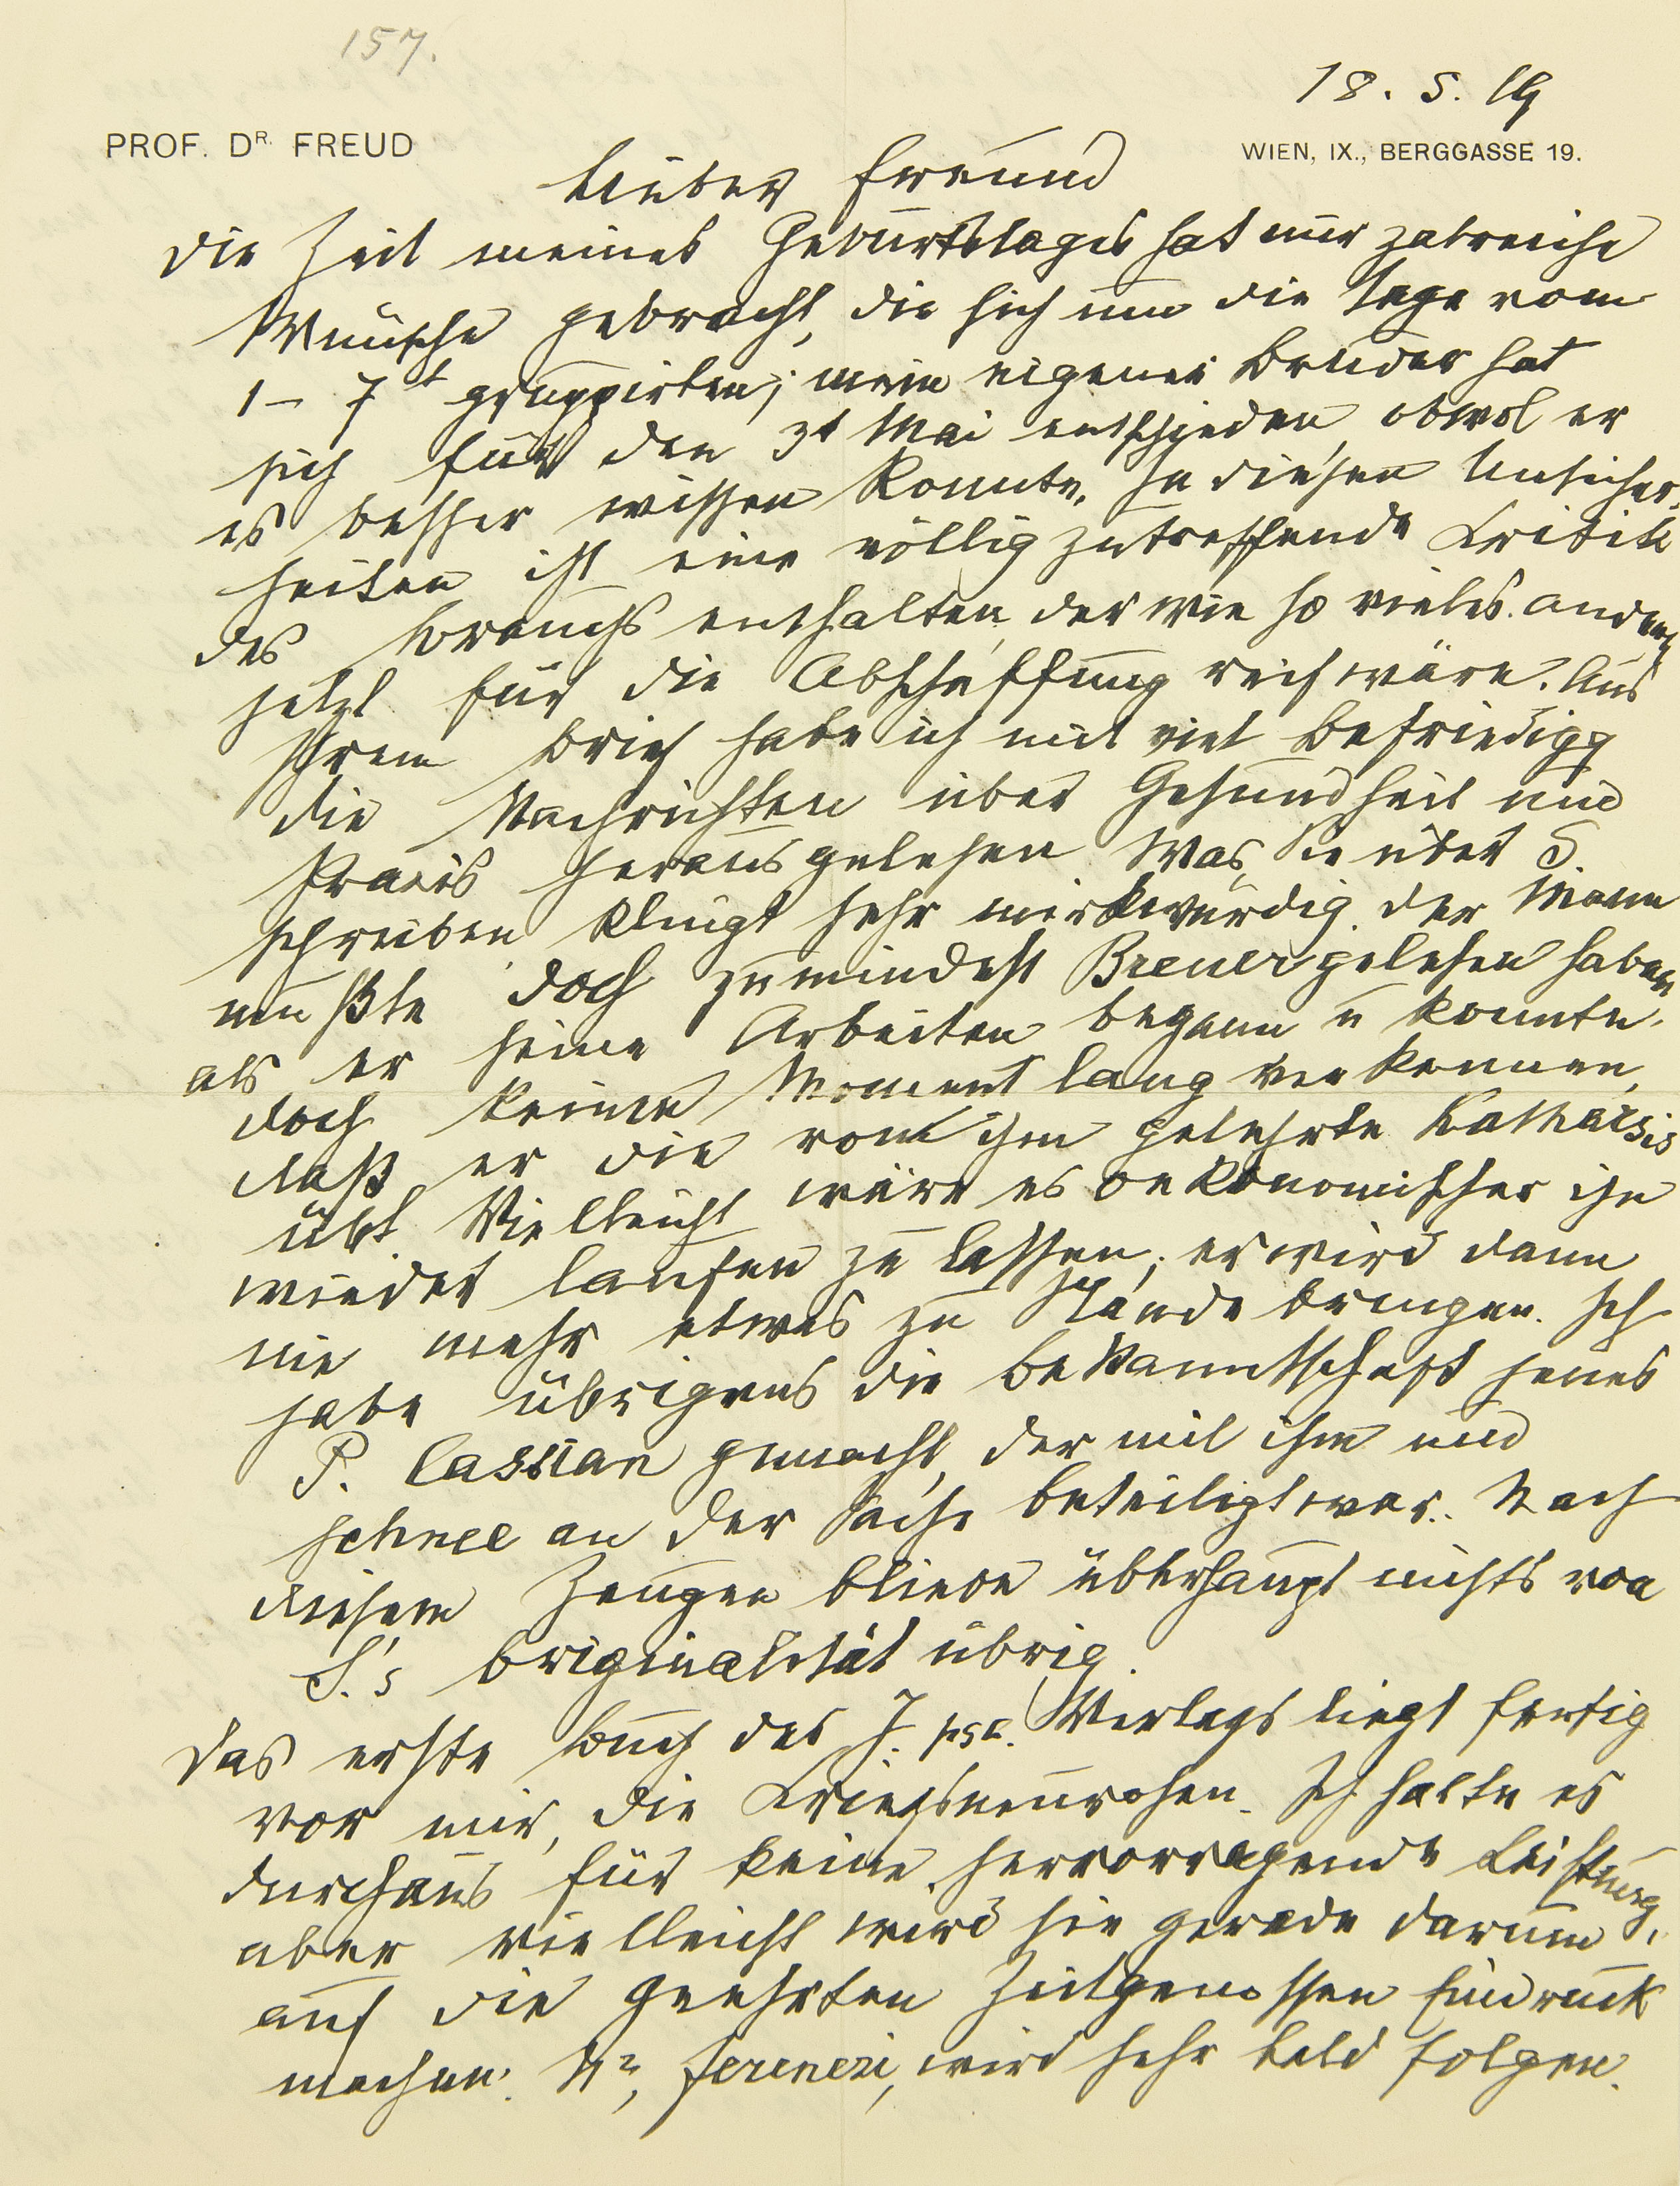 157.
18. 5. 19
PROF. DR. FREUD
WIEN, IX., BERGGASSE 19.
Lieber Freund
Die Zeit meines Geburtstages hat mir zalreiche
Wünsche gebracht, die sich um die Tage vom
1 – 7t gruppirten; mein eigener Bruder hat
sich für den 3t Mai entschieden, obwol er
es besser wissen konnte. In diesen Unsicher-
heiten ist eine völlig zutreffende Kritik
des Brauchs enthalten, der wie so vieles andere
jetzt für die Abschaffung reif wäre. Aus
Ihrem Brief habe ich mit viel Befriedigg
die Nachrichten über Gesundheit und
Praxis herausgelesen. Was Sie über S.
schreiben, klingt sehr merkwürdig. Der Mann
mußte doch zumindest Breuer gelesen haben
als er seine Arbeiten begann u konnte
doch keinen Moment lang verkennen,
daß er die von ihm gelehrte Katharsis
übt. Vielleicht wäre es oekonomischer ihn
wieder laufen zu lassen; er wird dann
nie mehr etwas zu Stande bringen. Ich
habe übrigens die Bekanntschaft jenes
P. Cassian gemacht, der mit ihm und
Schnee an der Sache beteiligt war. Nach
diesem Zeugen bliebe überhaupt nichts von
S.'s Originalität übrig.
Das erste Buch des I. psa. Verlags liegt fertig
vor mir, die Kriegsneurosen. Ich halte es
durchaus für keine hervorragende Leistung,
aber vielleicht wird sie gerade darum
auf die geehrten Zeitgenossen Eindruck
machen. N2, Ferenczi, wird sehr bald folgen.